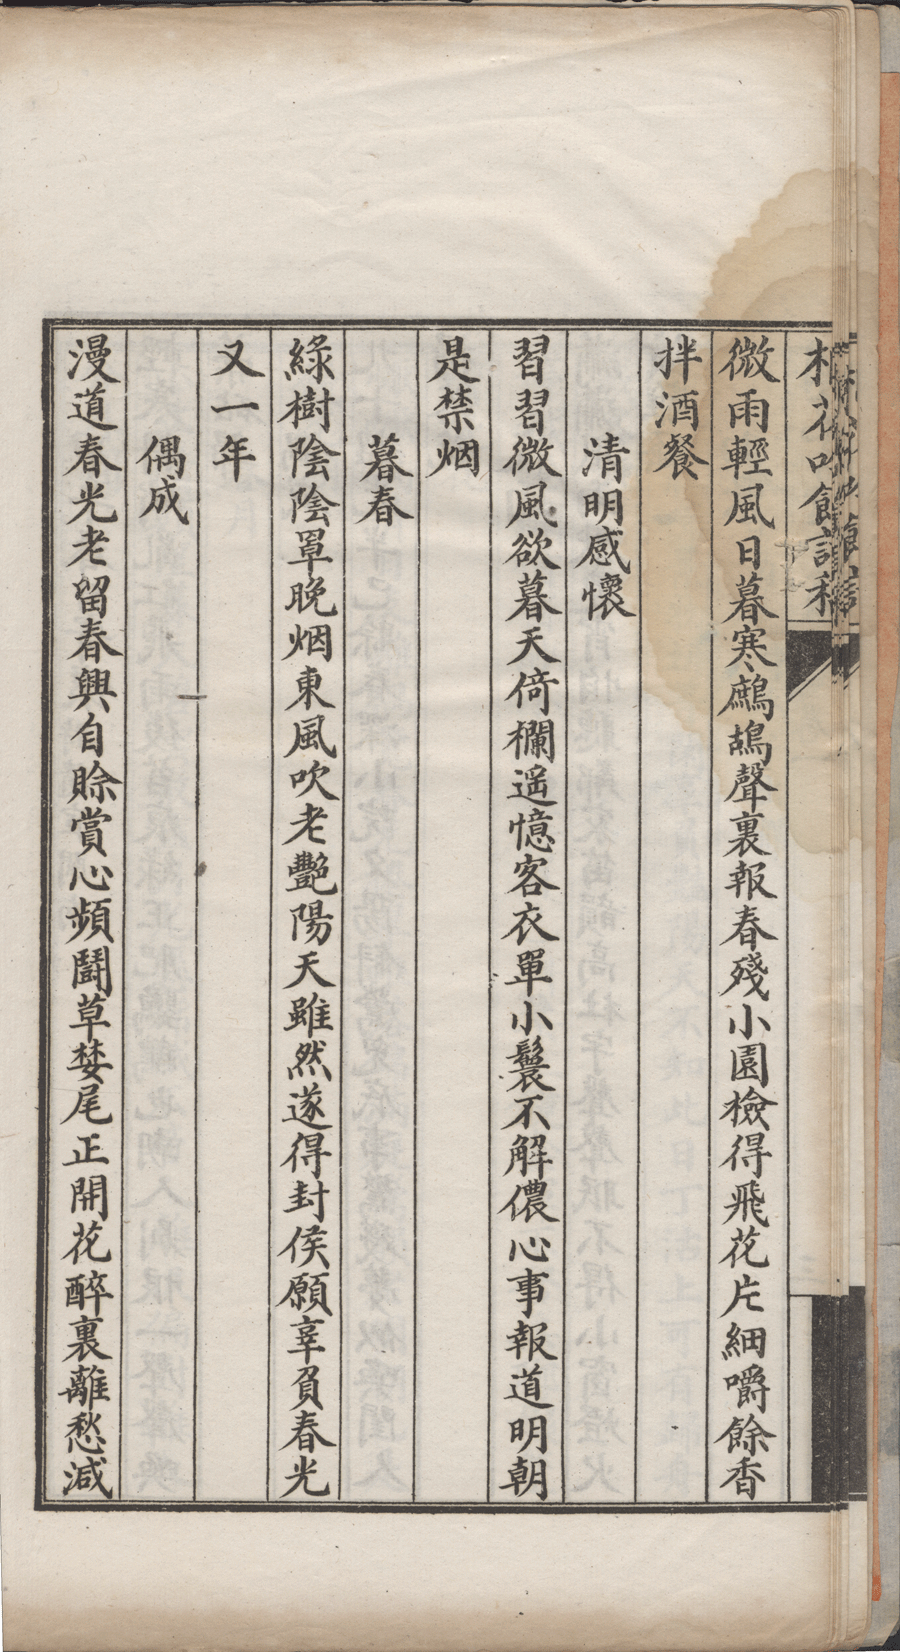 花吟館詩稿
微雨輕風日暮寒鷓鴣聲裏報春殘小園檢得飛花片細嚼餘香
拌酒餐
清明感懷
習習微風欲暮天倚欄遥憶客衣單小鬟不解儂心事報道明朝
是禁烟
暮春
綠樹陰陰罩晚烟東風吹老艷陽天雖然遂得封侯願辜負春光
又一年
偶成
漫道春光老留春興自賒賞心頻鬬草婪尾正開花醉裏離愁減